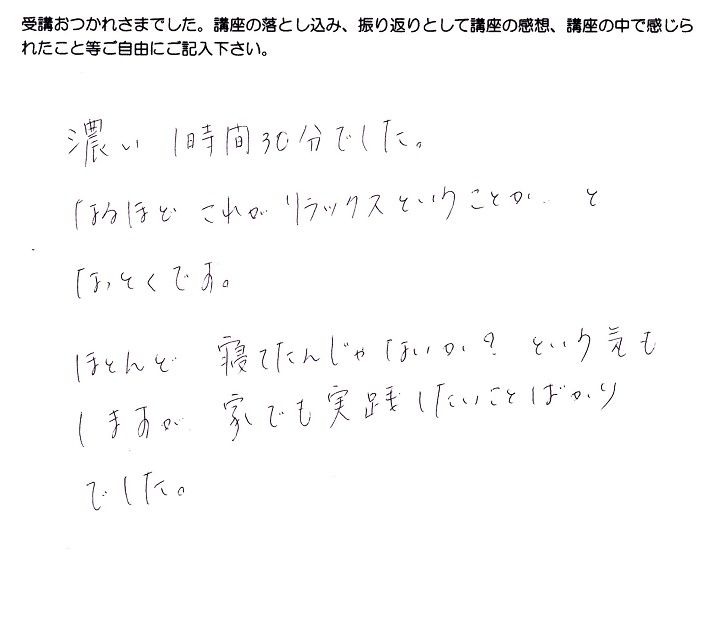 受講おつかれさまでした。講座の落とし込み、振り返りとして講座の感想、講座の中で感じら
れたこと等ご自由にご記入下さい。
濃い 1時間30分でした。
なるほど これがリラックスということか と
なっとくです。
ほとんど 寝てたんじゃないか? という気も
しますが 家でも実践したいことばかり
でした。